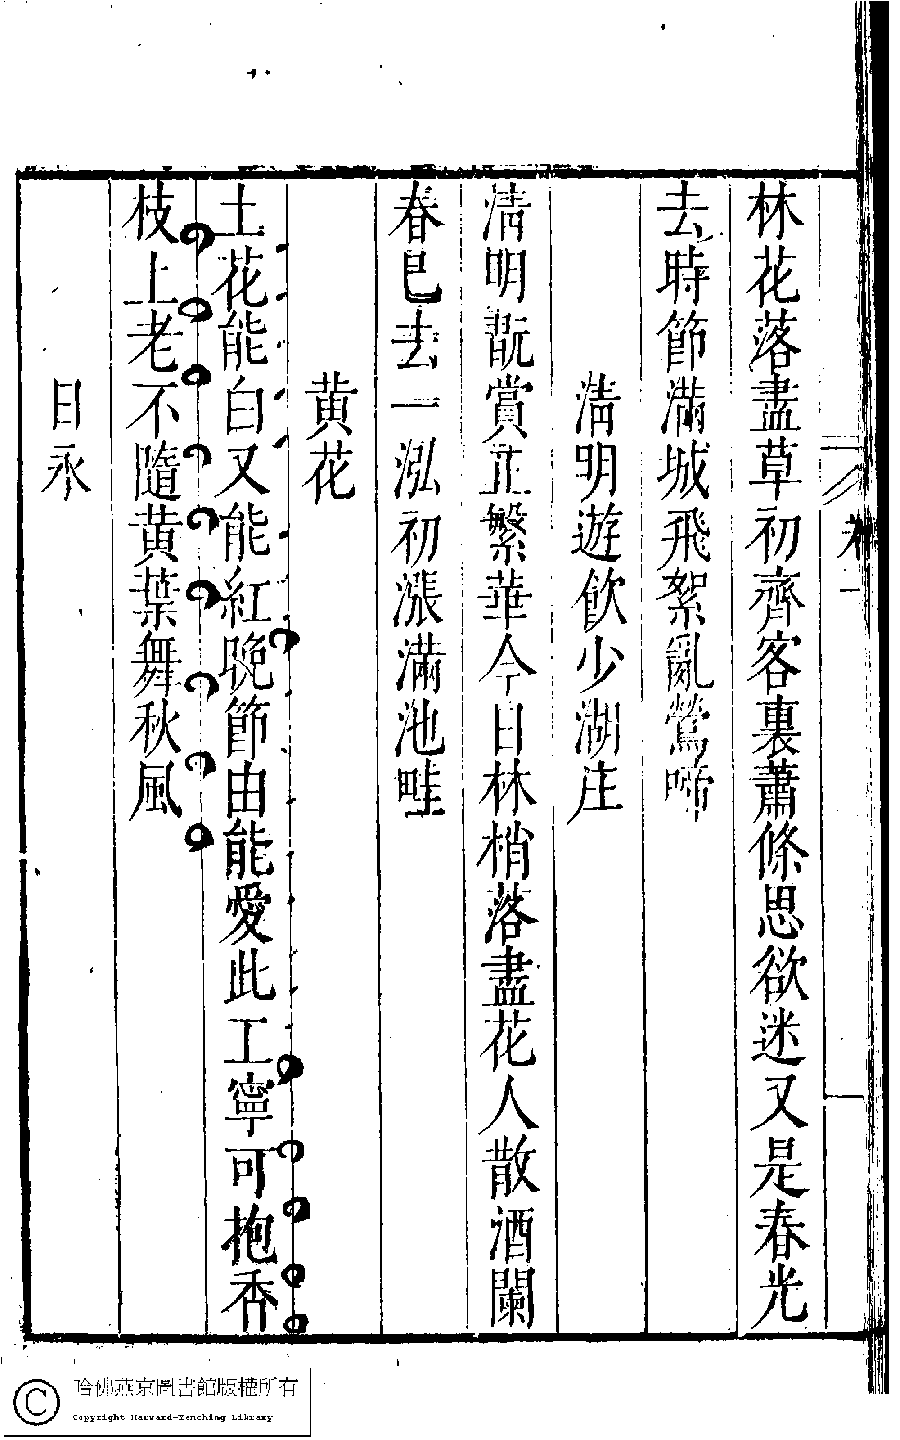 林花落盡草初齊客裏蕭條思欲迷又是春光
去時節滿城飛絮亂鶯啼
清明遊飲少湖庄
清明既賞正繁華今日林梢落盡花人散酒闌
春已去一泓初漲滿池畦
黃花
土花能白又能紅晚節由能愛此工寧可抱香
枝上老不隨黃葉舞秋風
日永
哈佛燕京圖書館版權所有
Copyright Harvard-Yenching Library